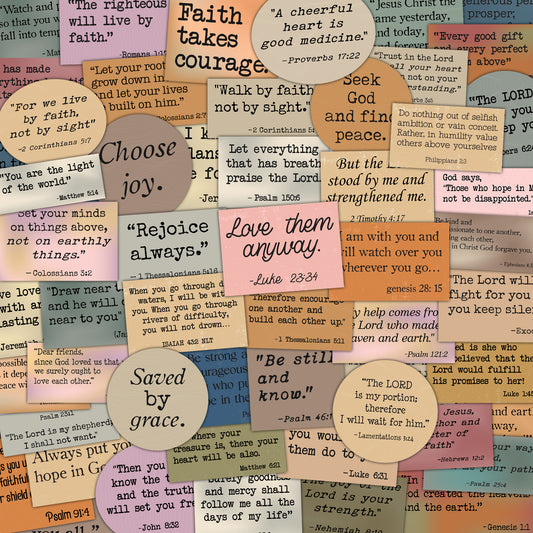 "The righteous
will live by
faith."
-Romans
Faith
takes
courage.
"A cheerful
heart is
good medicine."
-Proverbs 17:22
Jesus Christ
same yesterday,
today, and
forever
prosper;
"Every good gift
and every perfect
above"
"Let your roots
grow down in
and let your lives
built on him."
Colossians 2:7
"Walk by faith
not by sight."
-2 Corinthians 5:7
Seek
God
and find
peace.
"Trust in the Lord
all your heart
not on your
understanding."
Do nothing out of selfish
ambition or vain conceit.
Rather, in humility value
others above yourselves
Philippians 2:3
"The LORD
keep you
"For we live
by faith,
not by sight"
-2 Corinthians 5:7
Choose
joy.
"You are the light
of the world."
-Matthew 5:14
Let everything
that has breath
praise the Lord.
- Psalm 150:6
But the Lord
stood by me and
strengthened me.
2 Timothy 4:17
God says,
'Those who hope in M
not be disappointed.
Set your minds
on things above,
not on earthly
things."
- Colossians 3:2
"Rejoice
always."
- 1 Thessalonians 5:16
Love them
anyway.
-Luke 23:34
I am with you and
will watch over you
wherever you go...
genesis 28: 15
Be kind and
compassionate to one another,
forgiving each other,
in Christ God forgave you.
"Draw near t
and he will d
near to you"
When you go through d
waters, I will be wit
you. When you go through
rivers of difficulty,
you will not drown...
ISAIAH 43:2 NLT
Therefore encourage
one another and
build each other up."
-1 Thessalonians 5:11
My help comes from
the Lord who made
heaven and earth."
- Psalm 121:2
The LORD will
fight for you
you keep silent
-Exod
"Dear friends,
since God loved us that
we surely ought to
love each other."
Saved
by
grace.
Be strong a
courageous
"Be still
and
know."
-Psalm 46:1
"The LORD
is my portion;
therefore
I will wait for him."
-Lamentations 3:24
is she who
believed that the
Lord would fulfill
his promises to her!
Luke 1:45
Psalm 23:1
"The Lord is my shepherd,
I shall not want."
Always put yo
hope in G
where your
treasure is, there your
heart will be also.
Matthew 6:21
you would
them do to y
-Luke 6:31
Jesus,
author and
perfecter of
faith"
-Hebrews 12:2
-Psalm 25:4
Psalm 91:4
"Then you
know the t
and the truth
will set you fre
-John 8:32
Surely goodness
and mercy shall
follow me all the
days of my life"
The joy of the
Lord is your
strength."
- Nehemiah 8:10
created the heavens
and the earth.
-Genesis 1:1